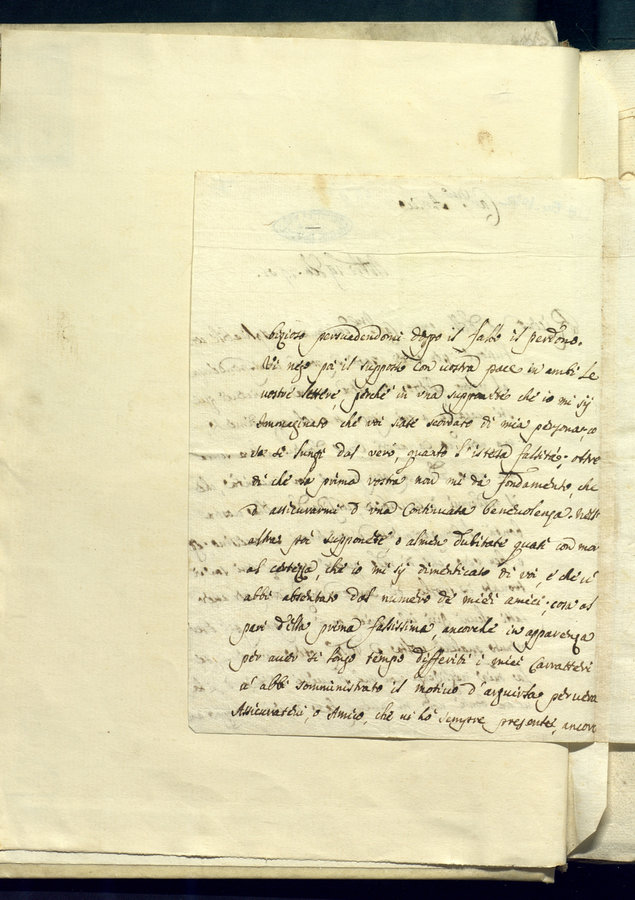 bizioso persuadendomi doppo il fallo il perdono.
Vi nego poi, il supposto con vostra pace in ambe le
vostre lettere, perche in una supponete che io mi sij
immaginato che voi siate scordato di mia persona, co
sa sì lungi dal vero, quanto l'istessa falsità; oltre
di che la prima vostra non mi dà fondamento, che
d'assicurarmi d'una continuata benevolenza. Nell'
altra poi supponete, o almen dubitate quasi con mor
al certezza, che io mi sij dimenticato di voi, e che v'
abbi absentato dal numero de miei amici; cosa al
pari della prima falsissima, ancorche in apparenza
per aver sì longo tempo differiti i miei Carratteri
v'abbi somministrato il motivo d'arguirla per vera
Assicuratevi, o Amico, che vi hò sempre presente, ancor